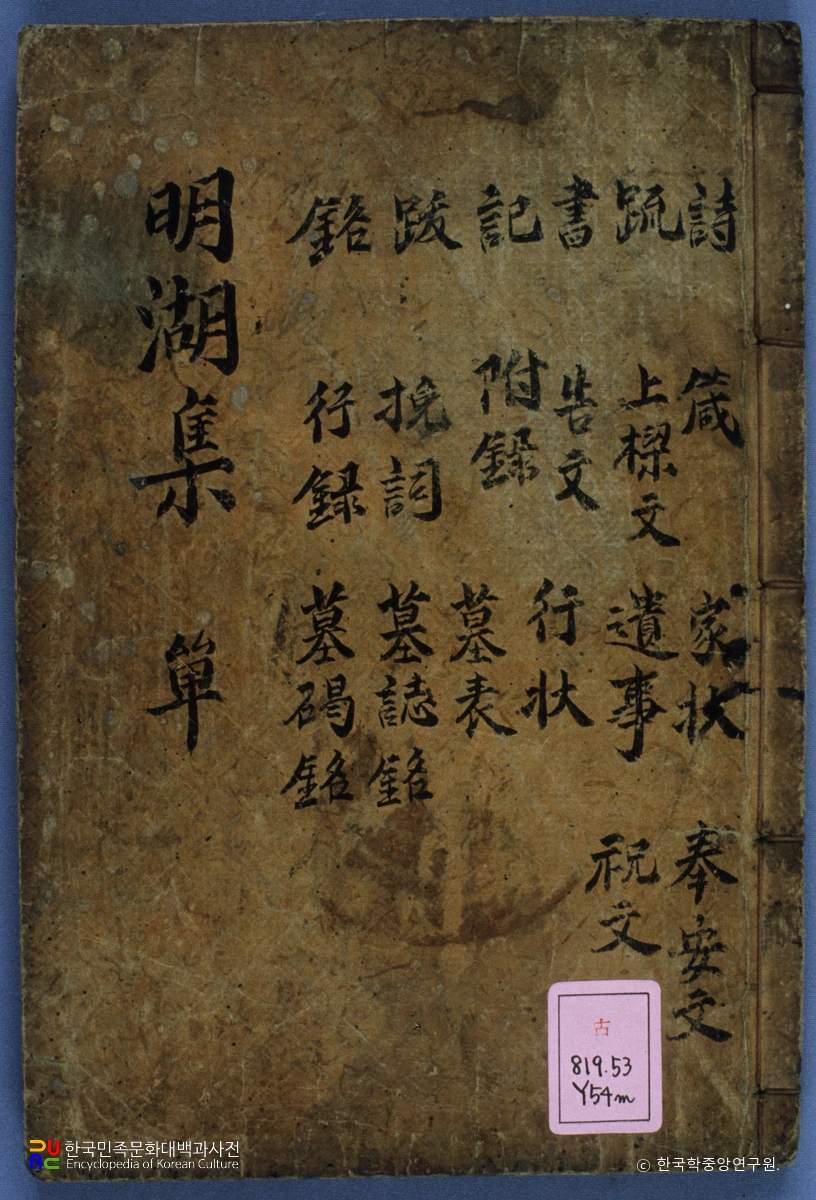 詩
疏
書
記
跋
銘
箴
上樑文
告文
附録
挽詞
行録
家狀
遺事
行狀
墓表
墓誌銘
墓碣銘
奉安文
祝文
明湖集 單
古
819.53
Y54m
한국민족문화대백과사전
Encyclopedia of Korean Culture
© 한국학중앙연구원.